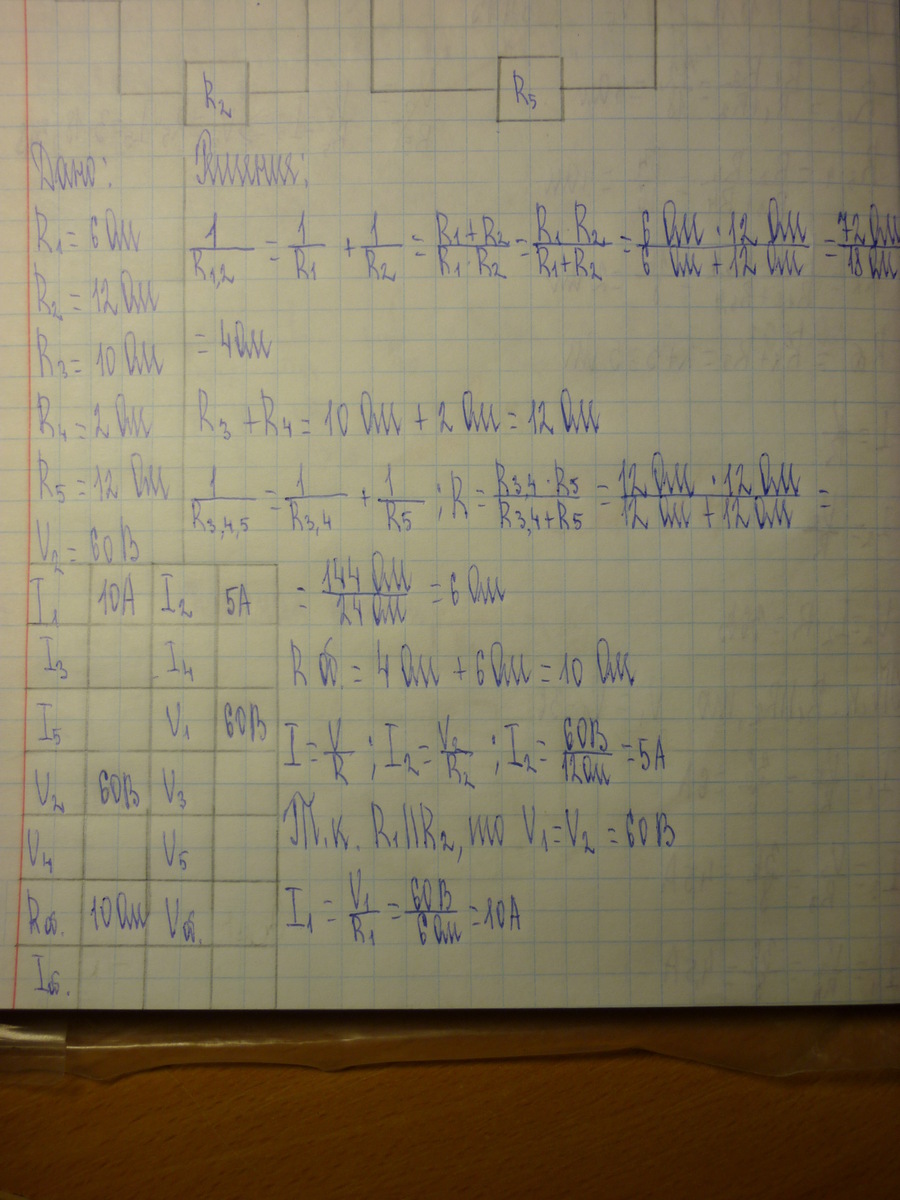 R₂ R₅
Дано: Решения:
R₁ = 6 Ом
R₂ = 12 Ом
R₃ = 10 Ом
R₄ = 2 Ом
R₅ = 12 Ом
V₂ = 60 В
1/R₁,₂ = 1/R₁ + 1/R₂ = R₁+R₂/R₁·R₂ = R₁·R₂/R₁+R₂ = 6 Ом · 12 Ом/6 Ом + 12 Ом = 72 Ом/18 Ом
= 4 Ом
R₃ + R₄ = 10 Ом + 2 Ом = 12 Ом
1/R₃,₄,₅ = 1/R₃,₄ + 1/R₅ ; R = R₃,₄·R₅/R₃,₄+R₅ = 12 Ом · 12 Ом/12 Ом + 12 Ом =
= 144 Ом/24 Ом = 6 Ом
R об. = 4 Ом + 6 Ом = 10 Ом
I = V/R ; I₂ = V₂/R₂ ; I₂ = 60В/12Ом = 5А
Т.к. R₁||R₂, то V₁ = V₂ = 60 В
I₁ = V₁/R₁ = 60В/6 Ом = 10А
I₁ 10А I₂ 5А
I₃ I₄
I₅ V₁ 60В
V₂ 60В V₃
V₄ V₅
Rоб. 10 Ом Vоб.
Iоб.